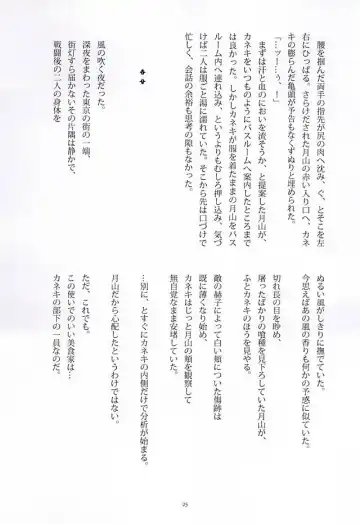 腰を掴んだ両手の指先が尻の肉へ沈み、ぐ、とそこを左
右にひっぱる。さらけだされた月山の赤い入り口へ、カネ
キの膨らんだ亀頭が予告もなくずぷりと埋められた。
「…ッー！　ぅ、！」
まずは汗と血のにおいを流そうか、と提案した月山が、
カネキをいつものようにバスルームへ案内したところまで
は良かった。しかしカネキが服を着たままの月山をバス
ルーム内へ連れ込み、というよりもむしろ押し込み、気づ
けば二人は服ごと湯に濡れていた。そこから先は口づけで
忙しく、会話の余裕も思考の隙もなかった。
風の吹く夜だった。
深夜をまわった東京の街の一端、
街灯すら届かないその片隅は静かで、
戦闘後の二人の身体を
ぬるい風がしきりに撫でていた。
今思えばあの風の香りも何かの予感に似ていた。
切れ長の目を眇め、
屠ったばかりの喰種を見下ろしていた月山が、
ふとカネキのほうを見やる。
敵の赫子によって白い頬についた傷跡は
既に薄くなり始め、
カネキはじっと月山の頬を観察して
無自覚なままに安堵していた。
…別に、とすぐにカネキの内側だけで分析が始まる。
月山だから心配したというわけではない。
ただ、これでも。
この使いでのいい美食家は…
カネキの部下の一員なのだ。
25